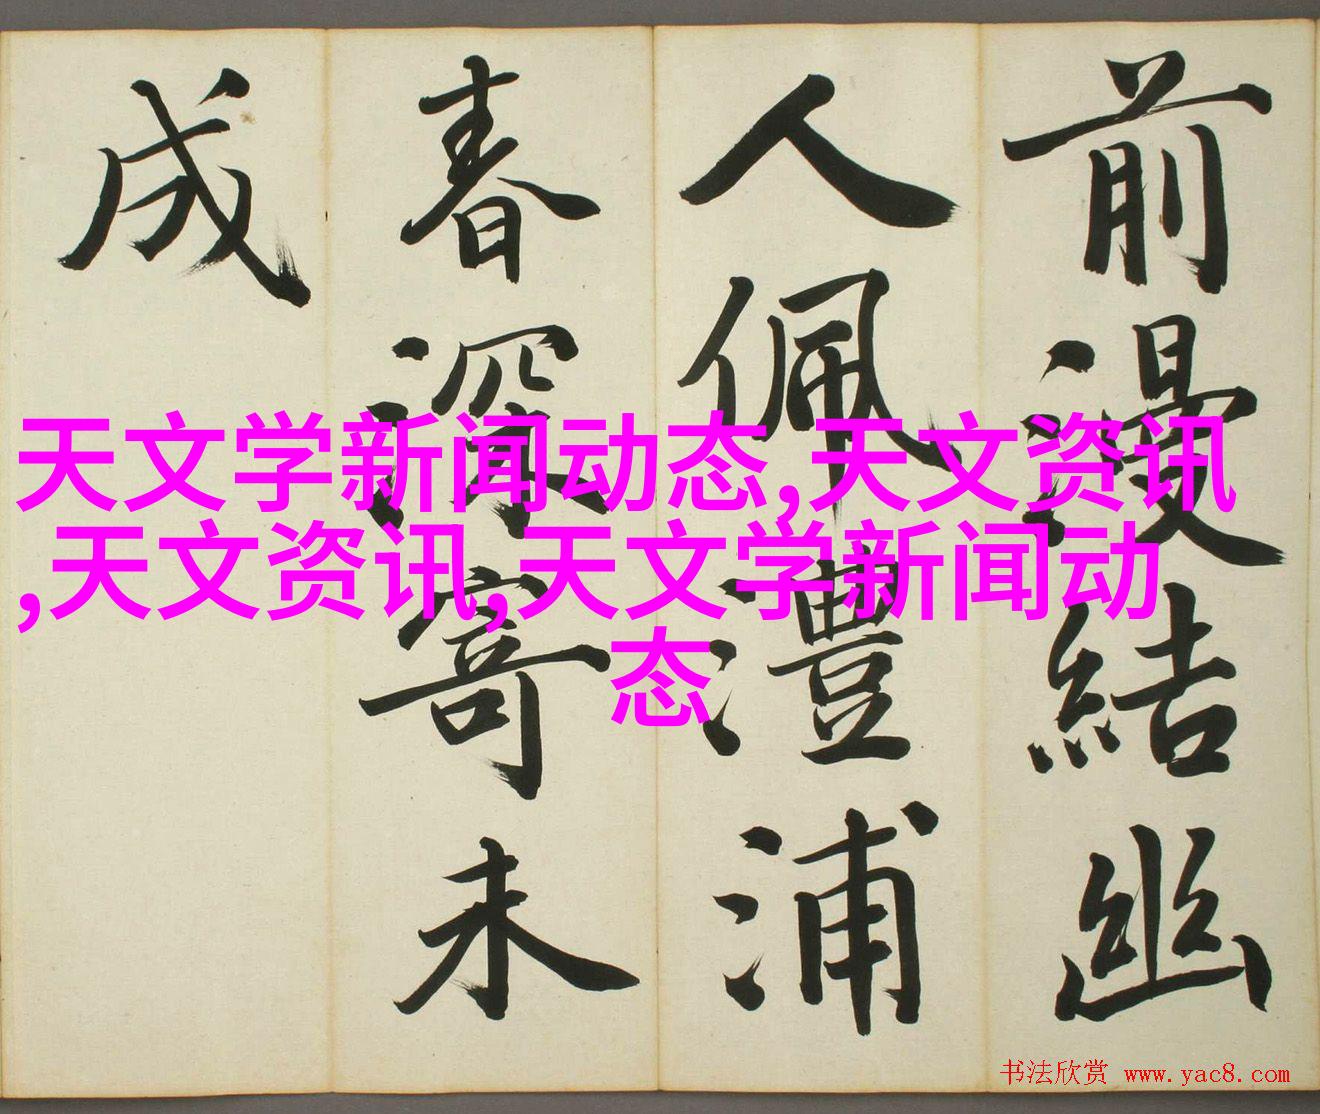 前漫結幽
人佩澧浦
春深寄未
成
天文学新闻动态,天文资讯
,天文资讯,天文学新闻动
态
书法欣赏 www.yac8.com